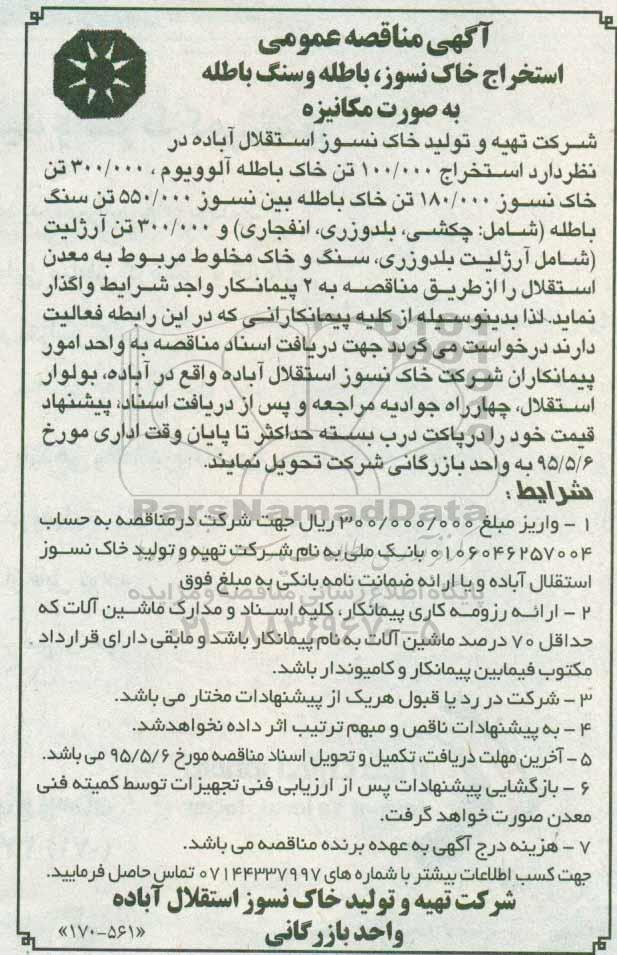 آگهی مناقصه عمومی
استخراج خاک نسوز، باطله وسنگ باطله
به صورت مکانیزه
شرکت تهیه و تولید خاک نسوز استقلال آباده در
نظردارد استخراج ۱۰۰/۰۰۰ تن خاک باطله آلوویوم ، ۳۰۰/۰۰۰ تن
خاک نسوز ۱۸۰/۰۰۰ تن خاک باطله بین نسوز ۵۵۰/۰۰۰ تن سنگ
باطله (شامل: چکشی، بلدوزری، انفجاری) و ۳۰۰/۰۰۰ تن آرژلیت
(شامل آرژلیت بلدوزری، سنگ و خاک مخلوط مربوط به معدن
استقلال را ازطریق مناقصه به ۲ پیمانکار واجد شرایط واگذار
نماید. لذا بدینوسیله از کلیه پیمانکارانی که در این رابطه فعالیت
دارند درخواست می گردد جهت دریافت اسناد مناقصه به واحد امور
پیمانکاران شرکت خاک نسوز استقلال آباده واقع در آباده، بولوار
استقلال، چهارراه جوادیه مراجعه و پس از دریافت اسناد، پیشنهاد
قیمت خود را درپاکت درب بسته حداکثر تا پایان وقت اداری مورخ
۹۵/۵/۶ به واحد بازرگانی شرکت تحویل نمایند.
شرایط :
۱ - واریز مبلغ ۳۰۰/۰۰۰/۰۰۰ ریال جهت شرکت در مناقصه به حساب
۰۱۰۶۰۴۶۲۵۷۰۰۴ بانک ملی به نام شرکت تهیه و تولید خاک نسوز
استقلال آباده و یا ارائه ضمانت نامه بانکی به مبلغ فوق
۲ - ارائه رزومه کاری پیمانکار، کلیه اسناد و مدارک ماشین آلات که
حداقل ۷۰ درصد ماشین آلات به نام پیمانکار باشد و مابقی دارای قرارداد
مکتوب فیمابین پیمانکار و کامیوندار باشد.
۳ - شرکت در رد یا قبول هریک از پیشنهادات مختار می باشد.
۴ - به پیشنهادات ناقص و مبهم ترتیب اثر داده نخواهدشد.
۵ - آخرین مهلت دریافت، تکمیل و تحویل اسناد مناقصه مورخ ۹۵/۵/۶ می باشد.
۶ - بازگشایی پیشنهادات پس از ارزیابی فنی تجهیزات توسط کمیته فنی
معدن صورت خواهد گرفت.
۷ - هزینه درج آگهی به عهده برنده مناقصه می باشد.
جهت کسب اطلاعات بیشتر با شماره های ۰۷۱۴۴۳۳۷۹۹۷ تماس حاصل فرمایید.
شرکت تهیه و تولید خاک نسوز استقلال آباده
واحد بازرگانی
«۱۷۰-۵۶۱»
ParsNamadData
پایگاه اطلاع رسانی مناقصه و مزایده
۰۲۱-۸۸۳۴۹۶۷۰-۵